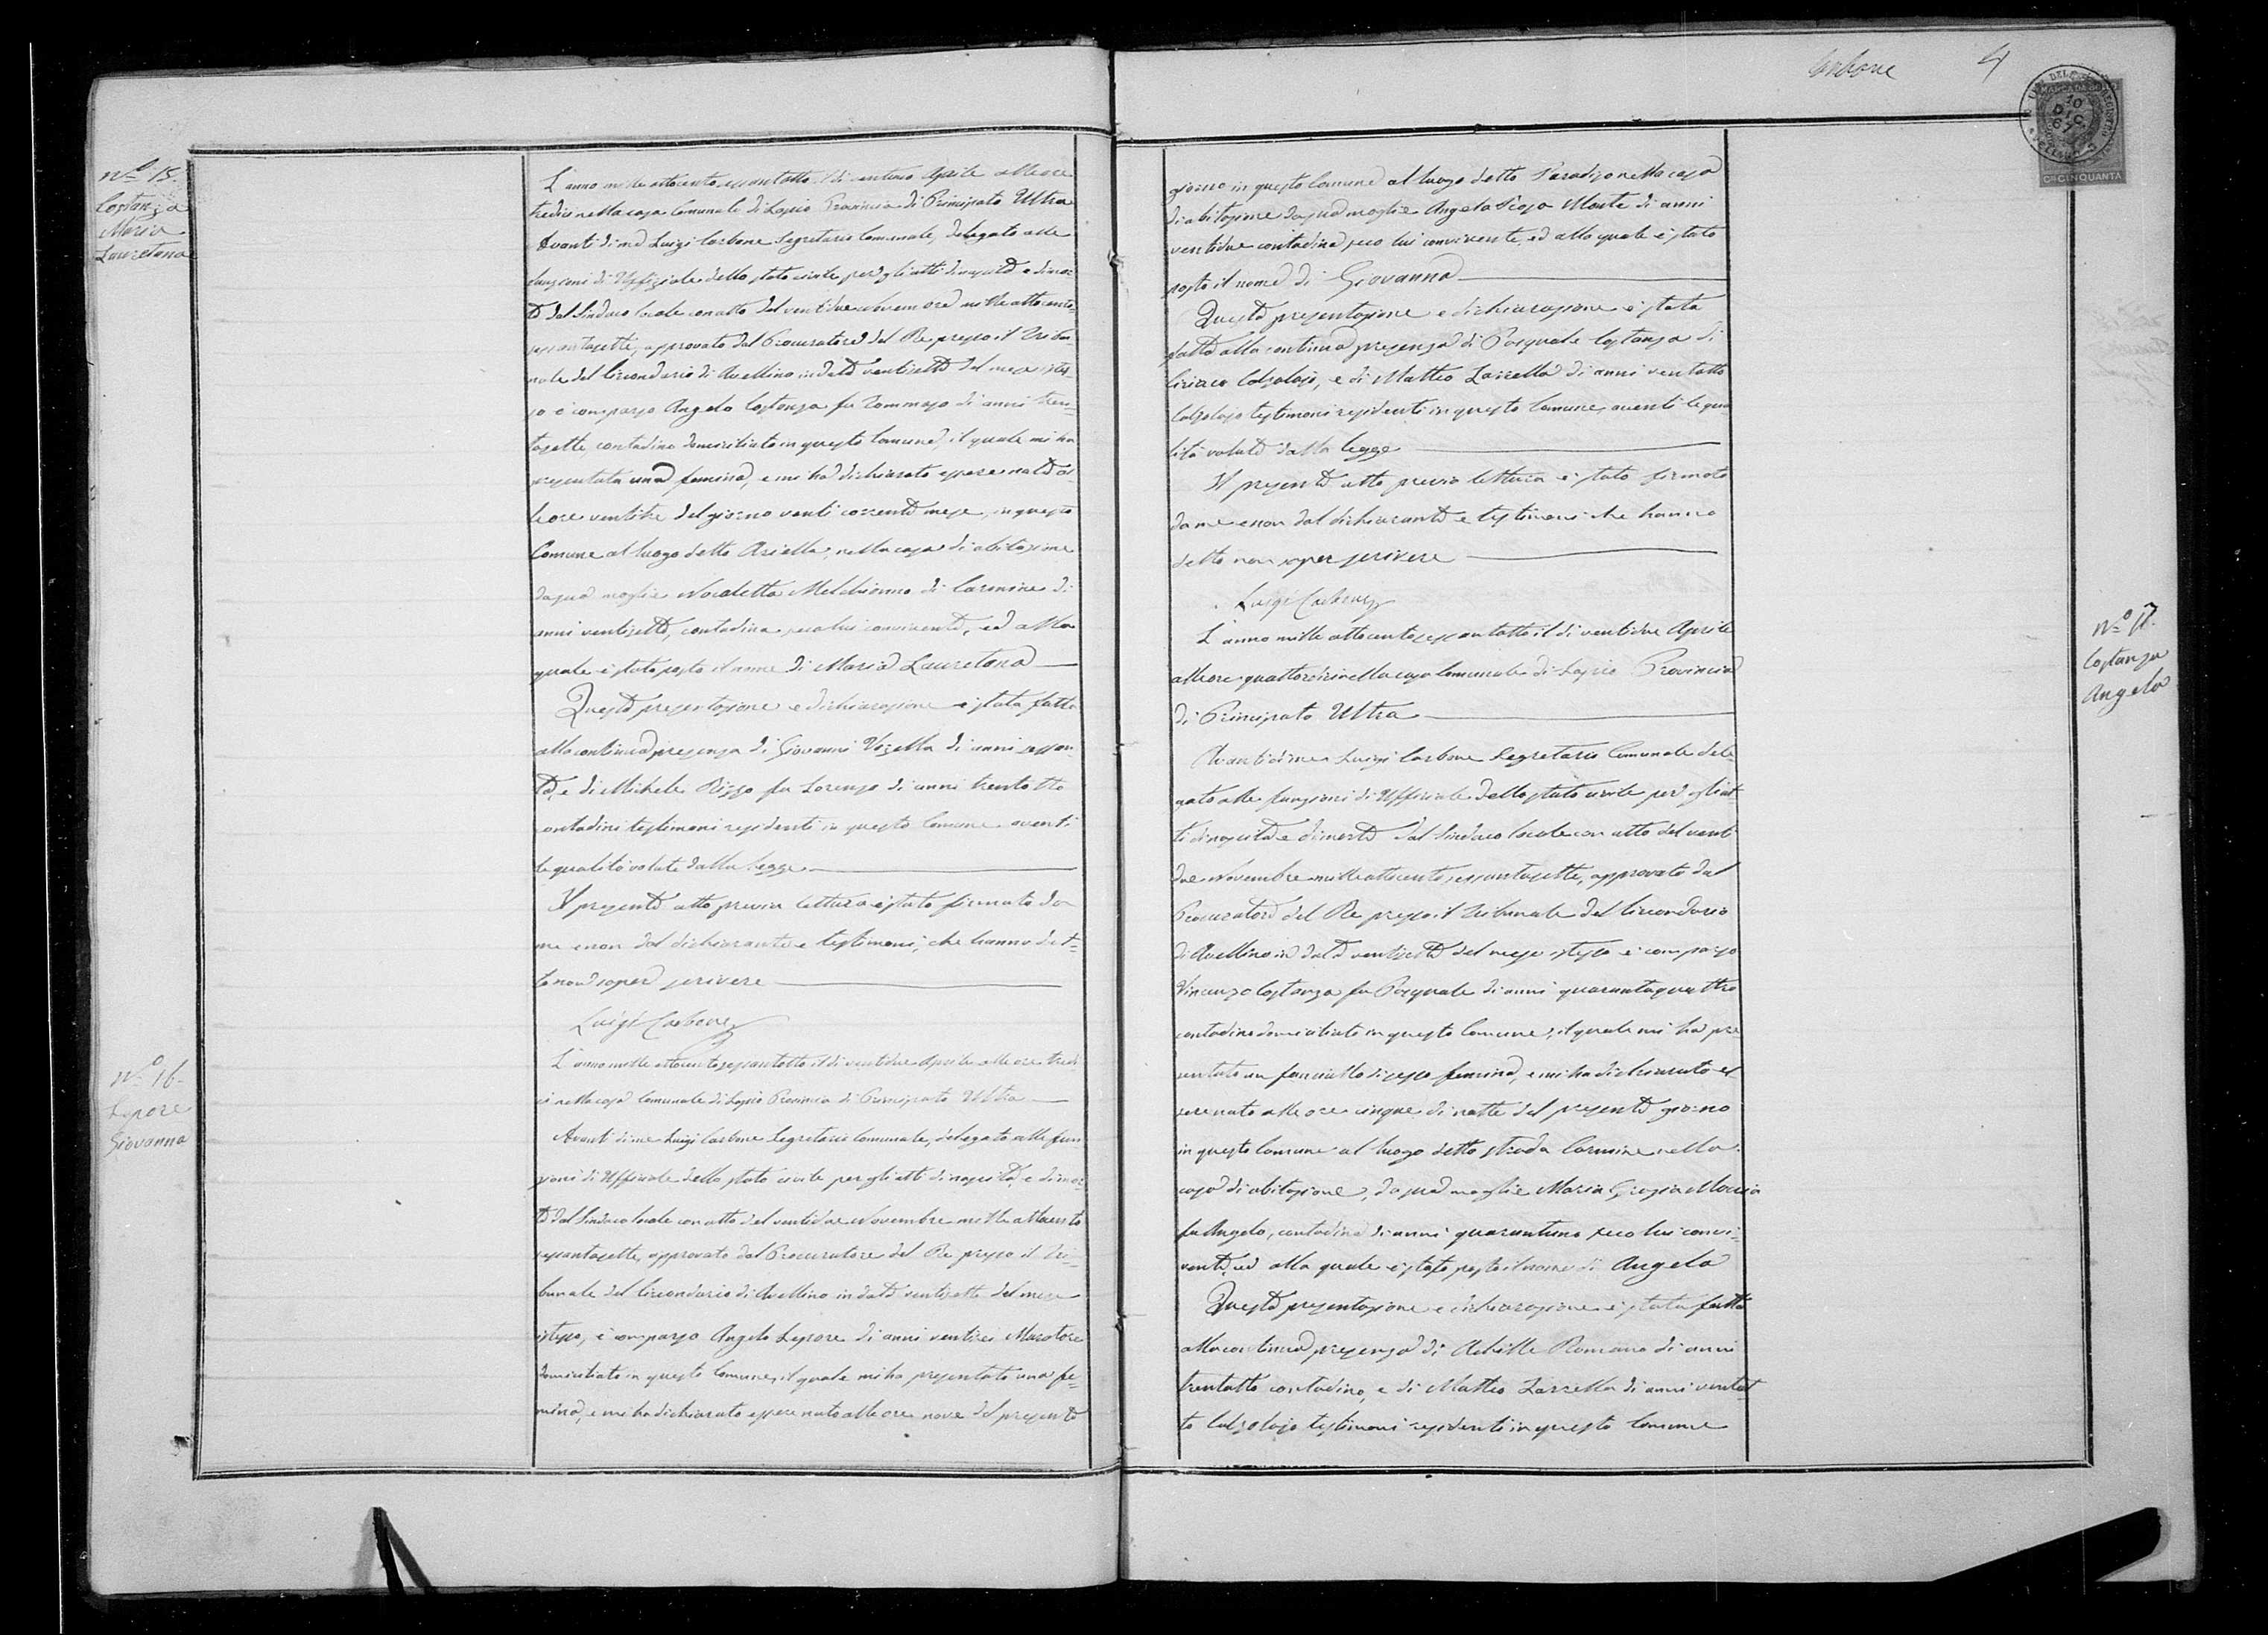 N.º 15.
Costanza
Maria
Lauretana
L'anno mille ottocento sessantotto il dì ventuno Aprile alle ore
tredici nella casa Comunale di Lapio Provincia di Principato Ultra
Avanti di me Luigi Carbone Segretario Comunale, delegato alle
funzioni di Uffiziale dello stato civile per gli atti di nascita e di mor=
te dal Sindaco locale con atto del ventidue Novembre mille ottocento=
sessantasette, approvato dal Procuratore del Re presso il Tribu=
nale del Circondario di Avellino in data ventisette del mese istes=
so è comparso Angelo Costanza fu Tommaso di anni tren=
tasette, contadino domiciliato in questo Comune, il quale mi ha
presentata una femina, e mi ha dichiarato essere nata al=
le ore ventitre del giorno venti corrente mese, in questo
Comune al luogo detto Ariella, nella casa di abitazione
da sua moglie Nicoletta Melchionno di Carmine di
anni ventisette, contadina seco lui convivente, ed alla
quale è stato posto il nome di Maria Lauretana
Questa presentazione e dichiarazione è stata fatta
alla continua presenza di Giovanni Vozella di anni sessan=
ta, e di Michele Rizzo fu Lorenzo di anni trentotto
contadini testimoni residenti in questo Comune aventi
le qualità volute dalla legge
Il presente atto previa lettura è stato firmato da
me e non dal dichiarante e testimoni, che hanno det=
to non saper scrivere
Luigi Carbone
N.º 16.
Lepore
Giovanna
L'anno mille ottocento sessantotto il dì ventidue Aprile alle ore tredi
ci nella casa Comunale di Lapio Provincia di Principato Ultra
Avanti di me Luigi Carbone Segretario Comunale, delegato alle fun
zioni di Uffiziale dello stato civile per gli atti di nascita, e di mor=
te dal Sindaco locale con atto del ventidue Novembre mille ottocento
sessantasette, approvato dal Procuratore del Re presso il Tri=
bunale del Circondario di Avellino in data ventisette del mese
istesso, è comparso Angelo Lepore di anni ventisei Muratore
domiciliato in questo Comune, il quale mi ha presentato una fe=
mina, e mi ha dichiarato essere nata alle ore nove del presente
Carbone 4
10
DIC
67
Cmi CINQUANTA
giorno in questo Comune al luogo detto Paradiso nella casa
di abitazione da sua moglie Angela Rosa Monte di anni
ventidue contadina seco lui convivente, ed alla quale è stato
posto il nome di Giovanna
Questa presentazione e dichiarazione è stata
fatta alla continua presenza di Pasquale Costanza di
Ciriaco Calzolajo, e di Matteo Zarrella di anni ventotto
Calzolajo testimoni residenti in questo Comune, aventi le qua
lità volute dalla legge
Il presente atto previa lettura è stato firmato
da me e non dal dichiarante e testimoni che hanno
detto non saper scrivere
Luigi Carbone
N.º 17.
Costanza
Angela
L'anno mille ottocento sessantotto il dì ventidue Aprile
alle ore quattordici nella casa Comunale di Lapio Provincia
di Principato Ultra
Avanti di me Luigi Carbone Segretario Comunale dele=
gato alle funzioni di Uffiziale dello stato civile per gli at
ti di nascita e di morte dal Sindaco locale con atto del venti
due Novembre mille ottocento sessantasette, approvato dal
Procuratore del Re presso il Tribunale del Circondario
di Avellino in data ventisette del mese istesso è comparso
Vincenzo Costanza fu Pasquale di anni quarantaquattro
contadino domiciliato in questo Comune, il quale mi ha pre
sentato un fanciullo di sesso femina, e mi ha dichiarato es
sere nato alle ore cinque di notte del presente giorno
in questo Comune al luogo detto strada Carmine nella
casa di abitazione, da sua moglie Maria Grazia Moccia
fu Angelo, contadina di anni quarantuno seco lui convi=
vente, ed alla quale è stato posto il nome di Angela
Questa presentazione e dichiarazione è stata fatta
alla continua presenza di Achille Romano di anni
trentotto contadino, e di Matteo Zarrella di anni ventot
to Calzolajo testimoni residenti in questo Comune